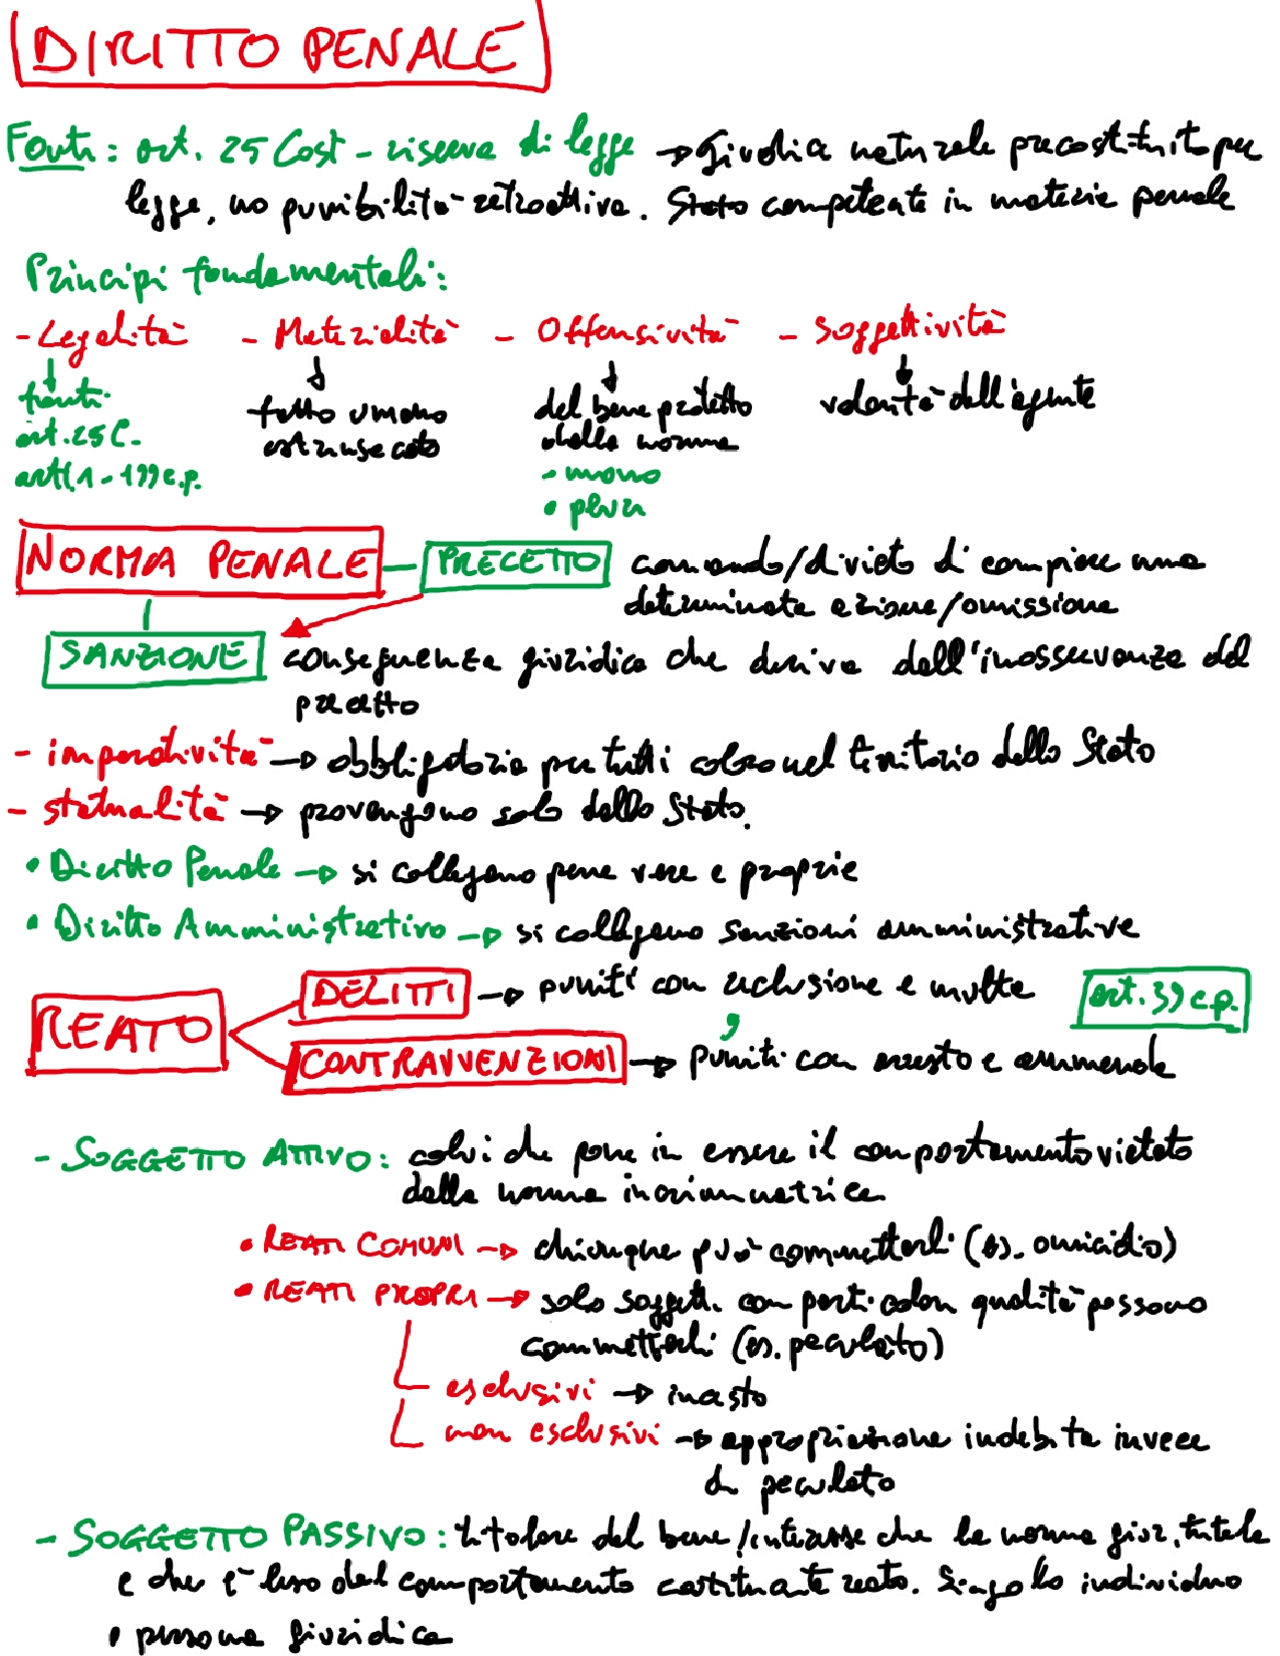 DIRITTO PENALE
Fonti: art. 25 Cost - riserva di legge → Giudice naturale precostituito per
legge, no punibilità retroattiva. Stato competente in materia penale
Principi fondamentali:
- Legalità - Materialità - Offensività - Soggettività
fonti fatto umano del bene protetto volontà dell'agente
art. 25 C. estrinsecato dalla norma
artt 1 - 199 c.p. - mono
• pluri
NORMA PENALE - PRECETTO comando/divieto di compiere una
determinata azione/omissione
SANZIONE conseguenza giuridica che deriva dall'inosservanza del
precetto
- imperatività → obbligatoria per tutti coloro nel territorio dello Stato
- statualità → provengono solo dallo Stato.
• Diritto Penale → si collegano pene vere e proprie
• Diritto Amministrativo → si collegano sanzioni amministrative
REATO DELITTI → puniti con reclusione e multa art. 39 c.p.
CONTRAVVENZIONI → puniti con arresto e ammenda
- SOGGETTO ATTIVO: colui che pone in essere il comportamento vietato
dalla norma incriminatrice
• REATI COMUNI → chiunque può commetterli (es. omicidio)
• REATI PROPRI → solo soggetti con particolari qualità possono
commetterli (es. peculato)
esclusivi → incesto
non esclusivi → appropriazione indebita invece
di peculato
- SOGGETTO PASSIVO: titolare del bene/interesse che la norma giur. tutela
e che è leso dal comportamento costituente reato. Singolo individuo
o persona giuridica